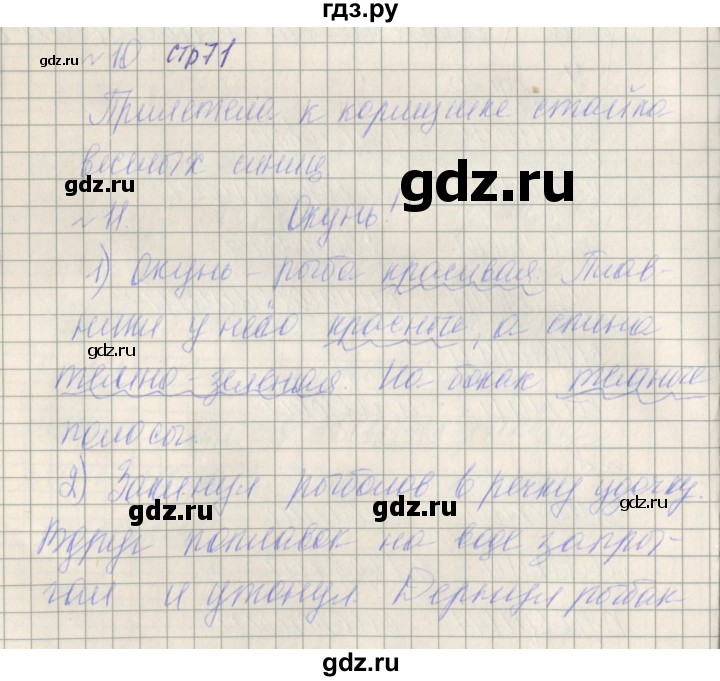 гдз.ру
gdz.ru №10 стр71
Прилетела к кормушке стайка
веселых синиц.
gdz.ru gdz.ru
№11. Окунь!
1) Окунь - рыба красивая. Плав-
ники у него красные, а спина
gdz.ru
темно-зеленая. На боках темные
полосы.
2) Закинул рыболов в речку удочку.
gdz.ru gdz.ru gdz.ru
Вдруг поплавок на воде запры-
гал и утонул. Дернул рыбак
gdz.ru